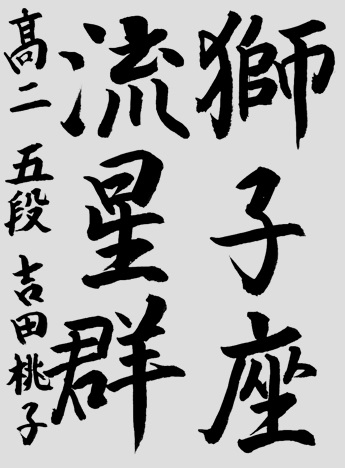 獅子座
流星群
高二 五段 吉田桃子